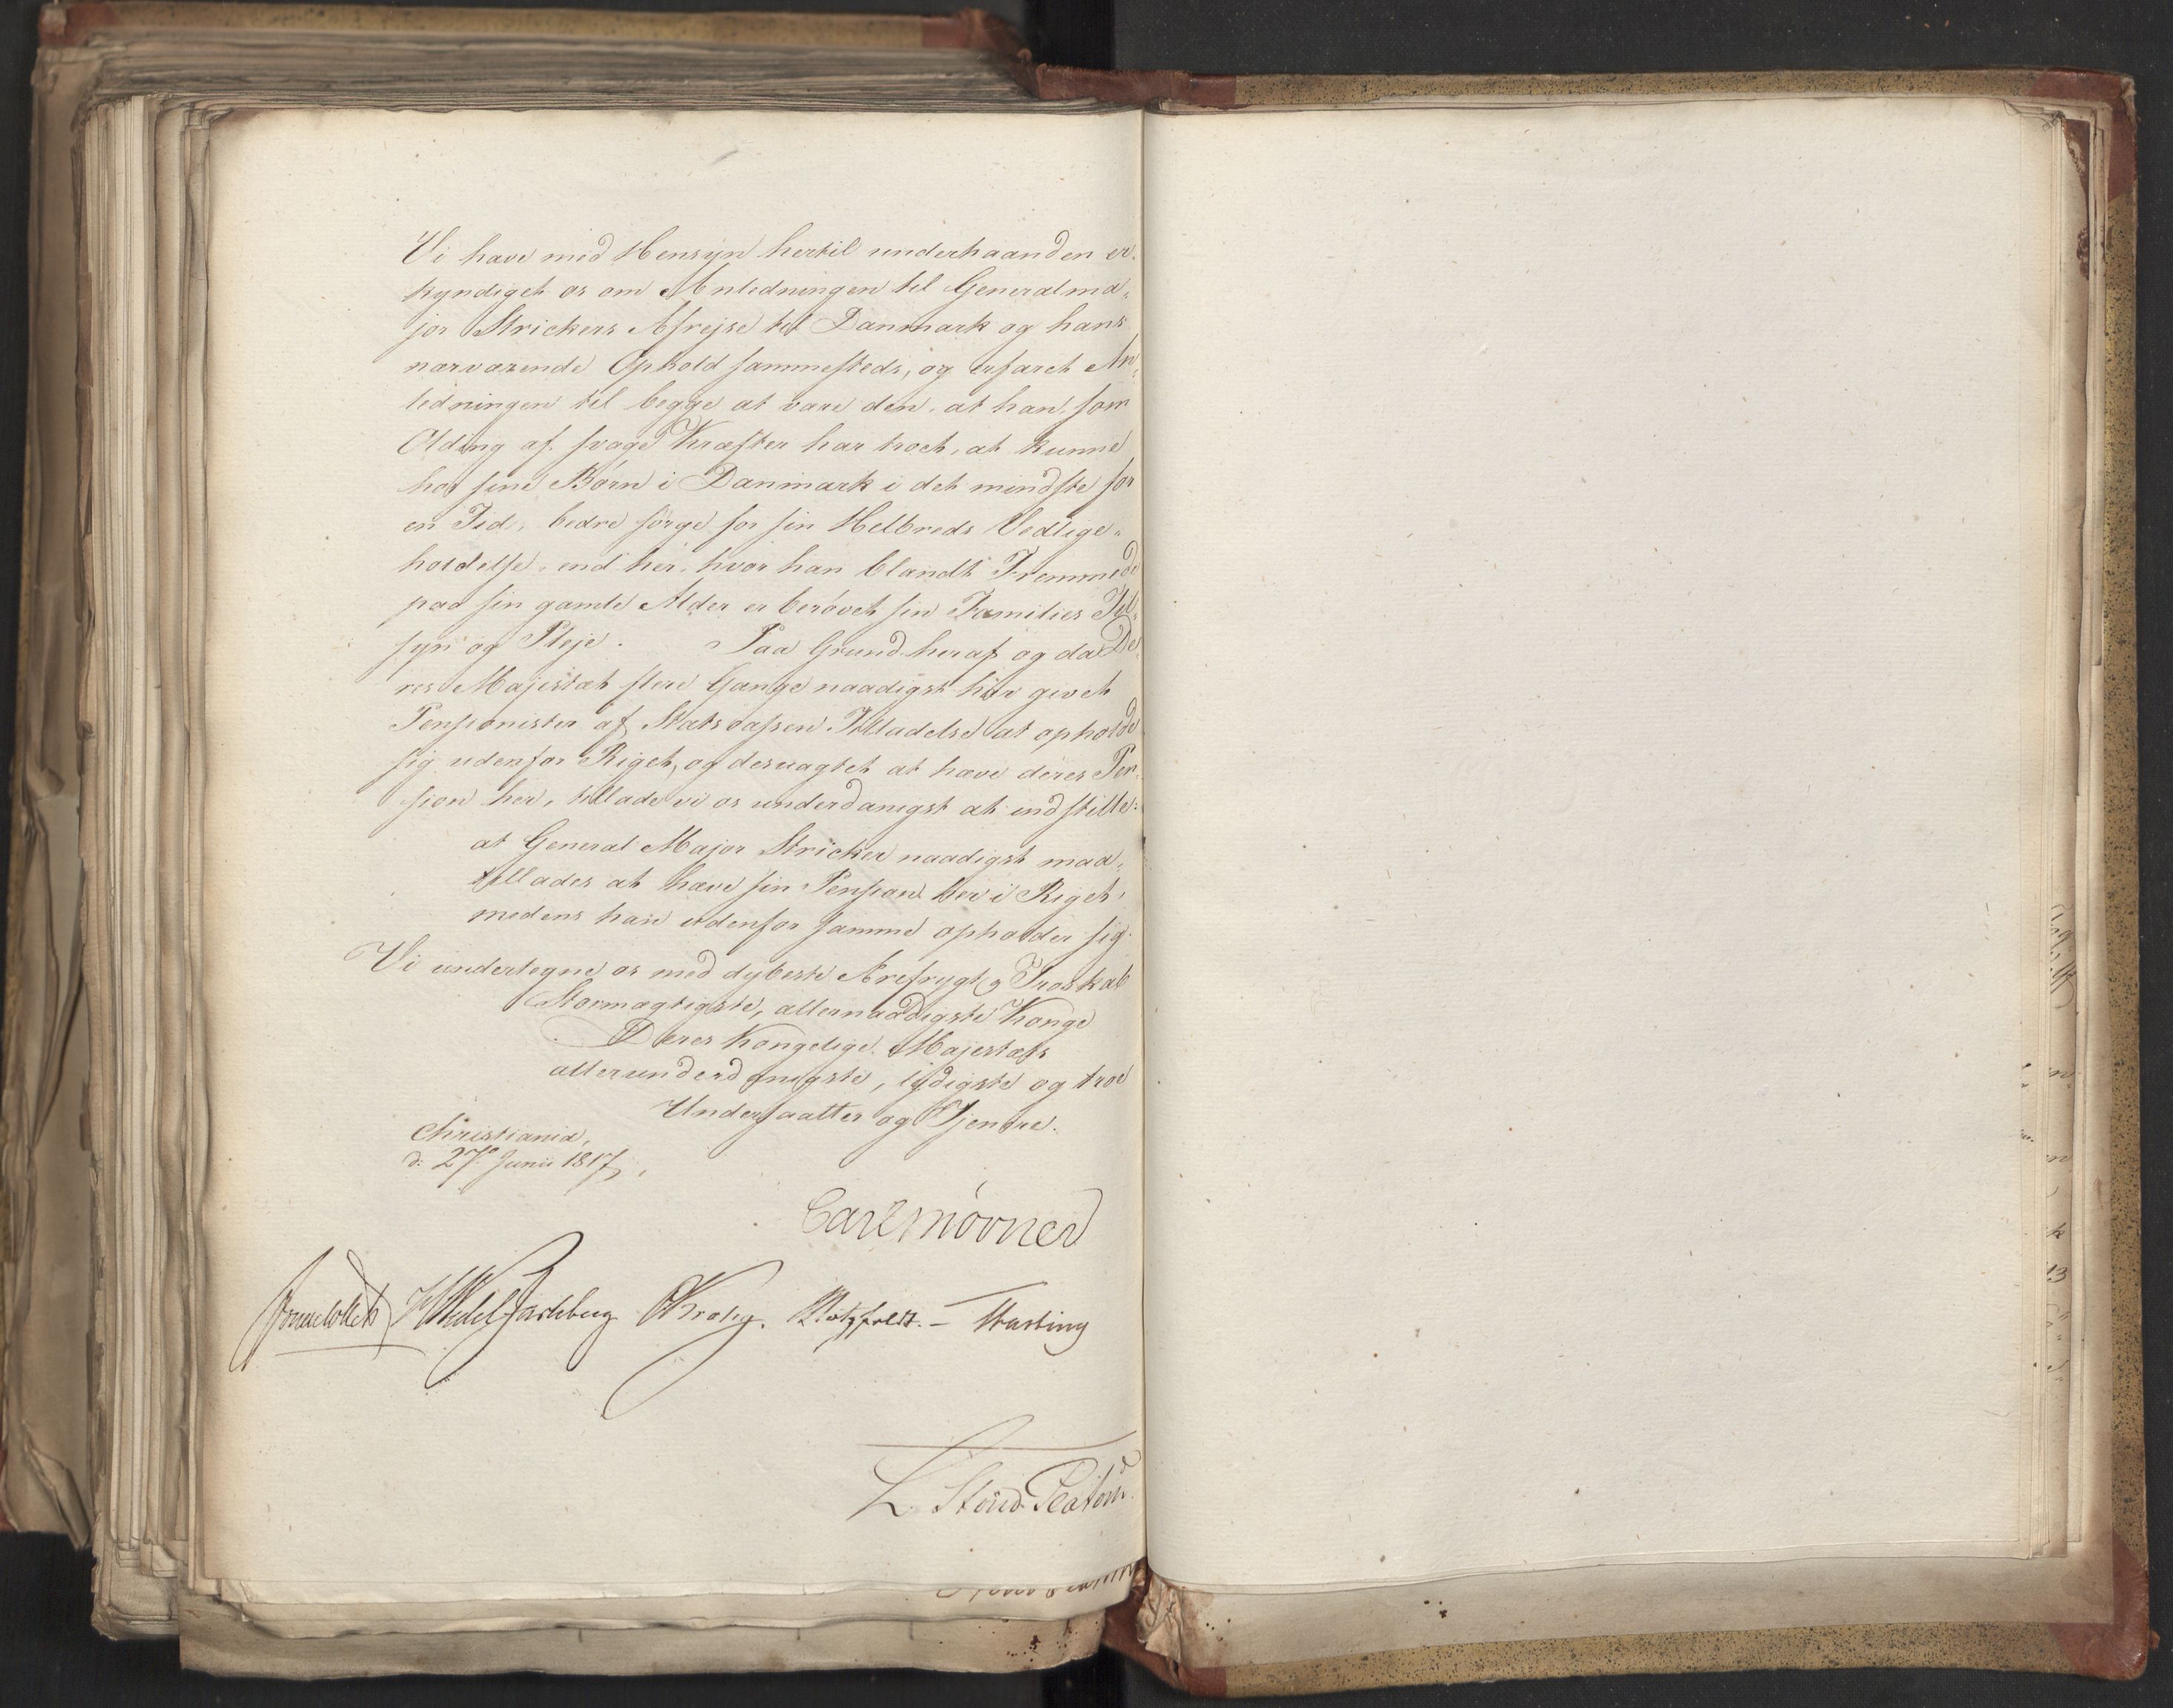 Vi have med Hensyn hertil underhaanden er¬
kyndiget os om Anledningen til Generalma¬
jor Strickers Afrejse til Danmark og hans
nærværende Ophold sammesteds, og erfaret An¬
ledningen til begge at være den, at han, som
Olding af svage Kræfter har troet, at kunne
hos sine Børn i Danmark i det mindste for
en Tid, bedre sørge for sin Helbreds Vedlige¬
holdelse, end her, hvor han blandt Fremmede
paa sin gamle Alder er berøvet sin Families Til¬
syn og Pleje. Paa Grund heraf og da De¬
res Majestæt flere Gange naadigst har givet
Pensionister af Statscassen Tilladelse at opholde
sig udenfor Riget, og desuagtet at hæve deres Pen¬
sion her, tillade vi os underdanigst at indstille:
at General Major Stricker naadigst maa
tillades at hæve sin Pension her i Riget,
medens han udenfor samme opholder sig.
Vi undertegne os med dybeste Ærefrygt og Troskab
Stormægtigste, allernaadigste Konge
Deres Kongelige Majestæts
allerunderdanigste, lydigste og troe
Undersaatter og Tjenere.
Christiania,
d: 27de Junii 1817,
Carl Mörner
Sommerhielm HWedel Jarlsberg CKrohg. Motzfeldt. – Hasting
L. Stoud Platou